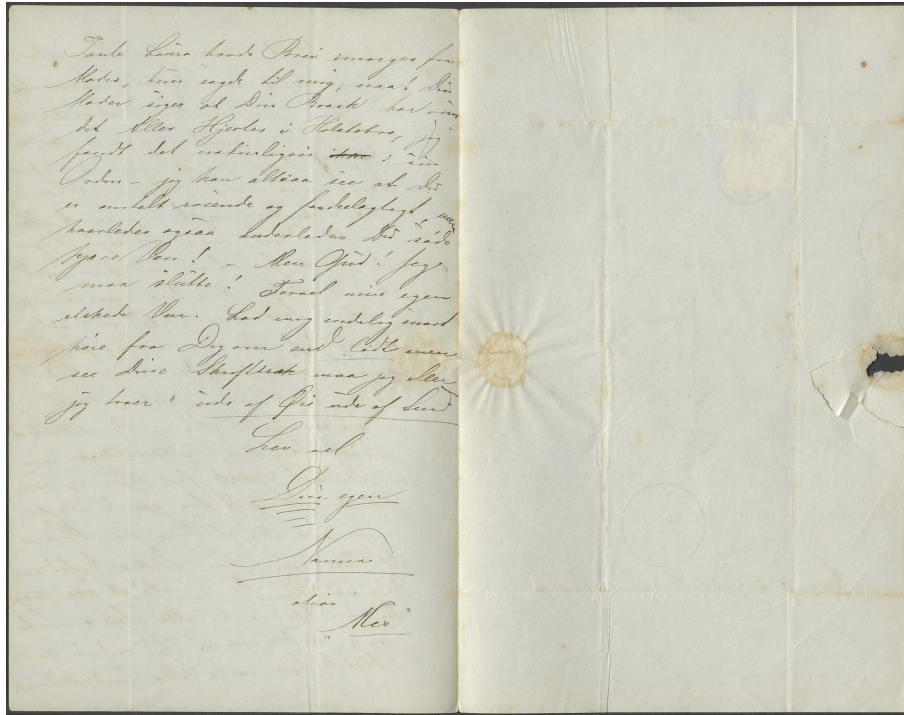 Tante Laura havde Brev imorges fra
Moder, hun sagde til mig, naa! Din
Moder siger at Din Broder har
det Alles Hjerter i Holstebro, jeg
fandt det naturligvis i sin
Orden – jeg kan altsaa see at Du
er omtalt roende og fordeelagtigt, men
hvorledes ogsaa anderledes Du søde
kjære Ven! – Men Gud! Jeg
maa slutte! Farvel min egen
elskede Ven. Lad mig endelig snart
høre fra Dig om end Lidt men
see Dine Skrifttræk maa jeg eller
jeg troer "ude af Øie ude af Sind
Lev vel
Din egen
Nanna
alias
"Mes"